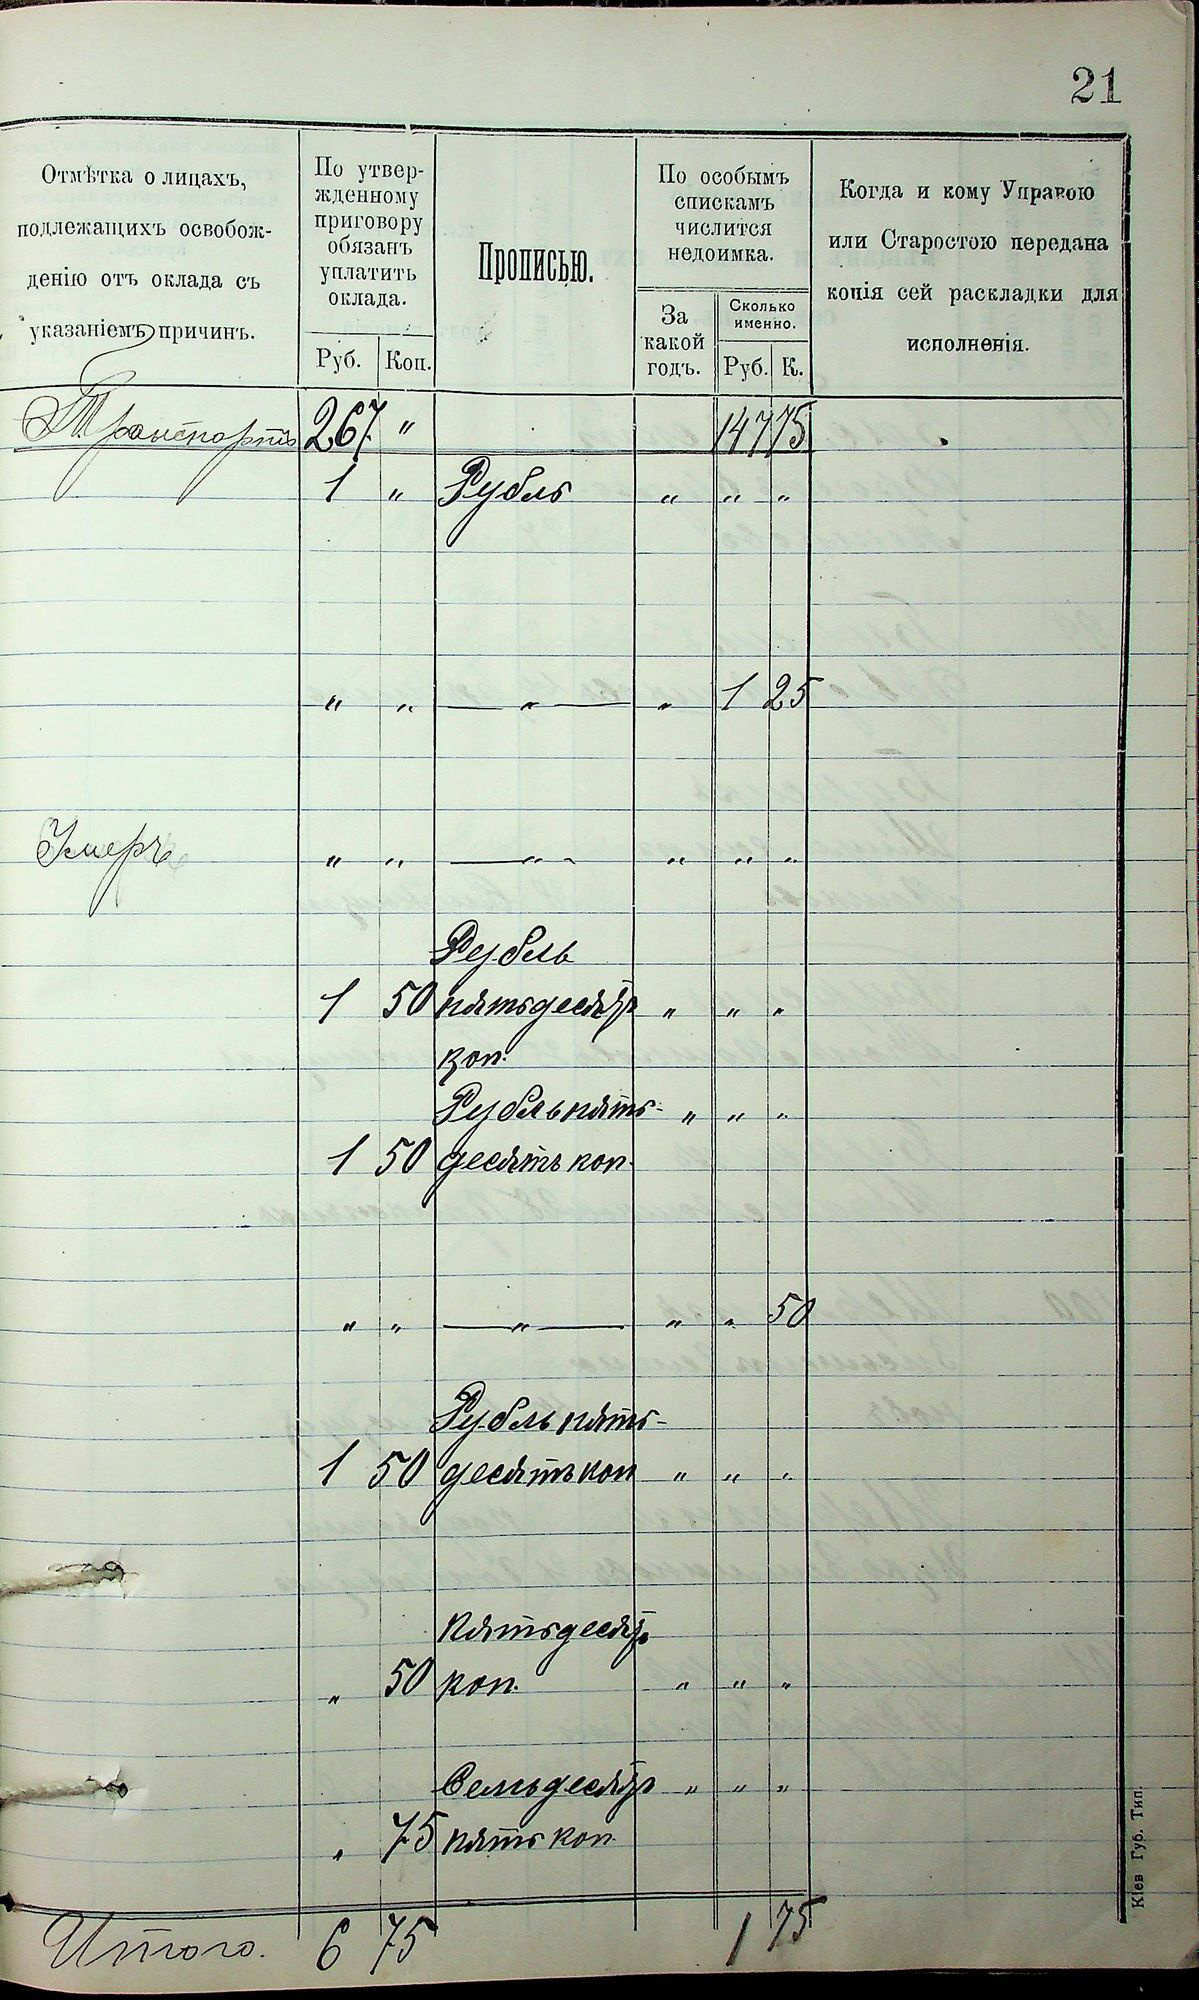 21
Отмѣтка о лицахъ,
подлежащихъ освобож-
денію отъ оклада съ
указаніемъ причинъ.
По утвер-
жденному
приговору
обязанъ
уплатить
оклада.
Руб. Коп.
Прописью.
По особымъ
спискамъ
числится
недоимка.
За
какой
годъ.
Сколько
именно.
Руб. К.
Когда и кому Управою
или Старостою передана
копія сей раскладки для
исполненія.
Транспортъ 267 " 147 75
1 " Рубль " " "
" " — " — " 1 25
Умеръ " " — " - " " "
Рубль
1 50 пятьдесятъ " " "
коп.
Рубль пять- " " "
1 50 десятъ коп.
" " — " — " " 50
Рубль пять-
1 50 десятъ коп " " "
Пятьдесятъ
" 50 коп. " " "
Семьдесятъ " " "
" 75 пять коп
Итого. 6 75 1 75
Кіев Губ. Тип.